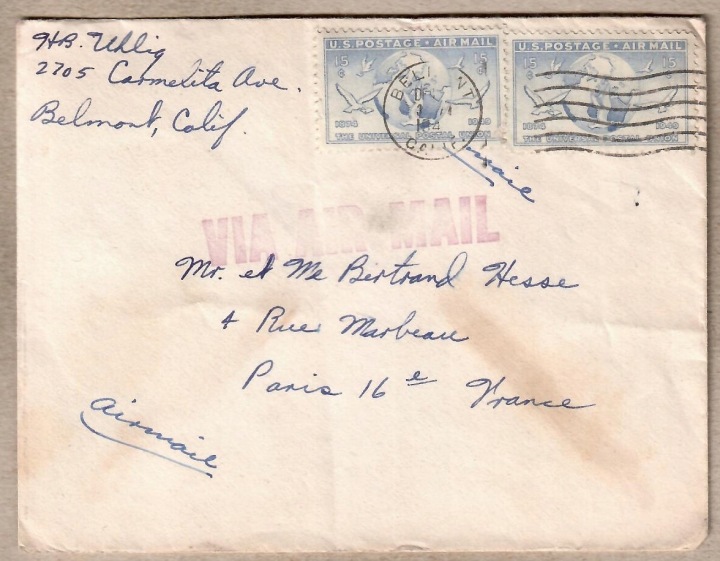 H.B. Uhlig
2705 Carmelita Ave.
Belmont, Calif.
U.S. POSTAGE · AIR MAIL
15¢ 15¢
1874 1949
THE UNIVERSAL POSTAL UNION
U.S. POSTAGE · AIR MAIL
15¢ 15¢
1874 1949
THE UNIVERSAL POSTAL UNION
VIA AIR MAIL
Mr. et Me Bertrand Hesse
4 Rue Marbeau
Paris 16e France
airmail